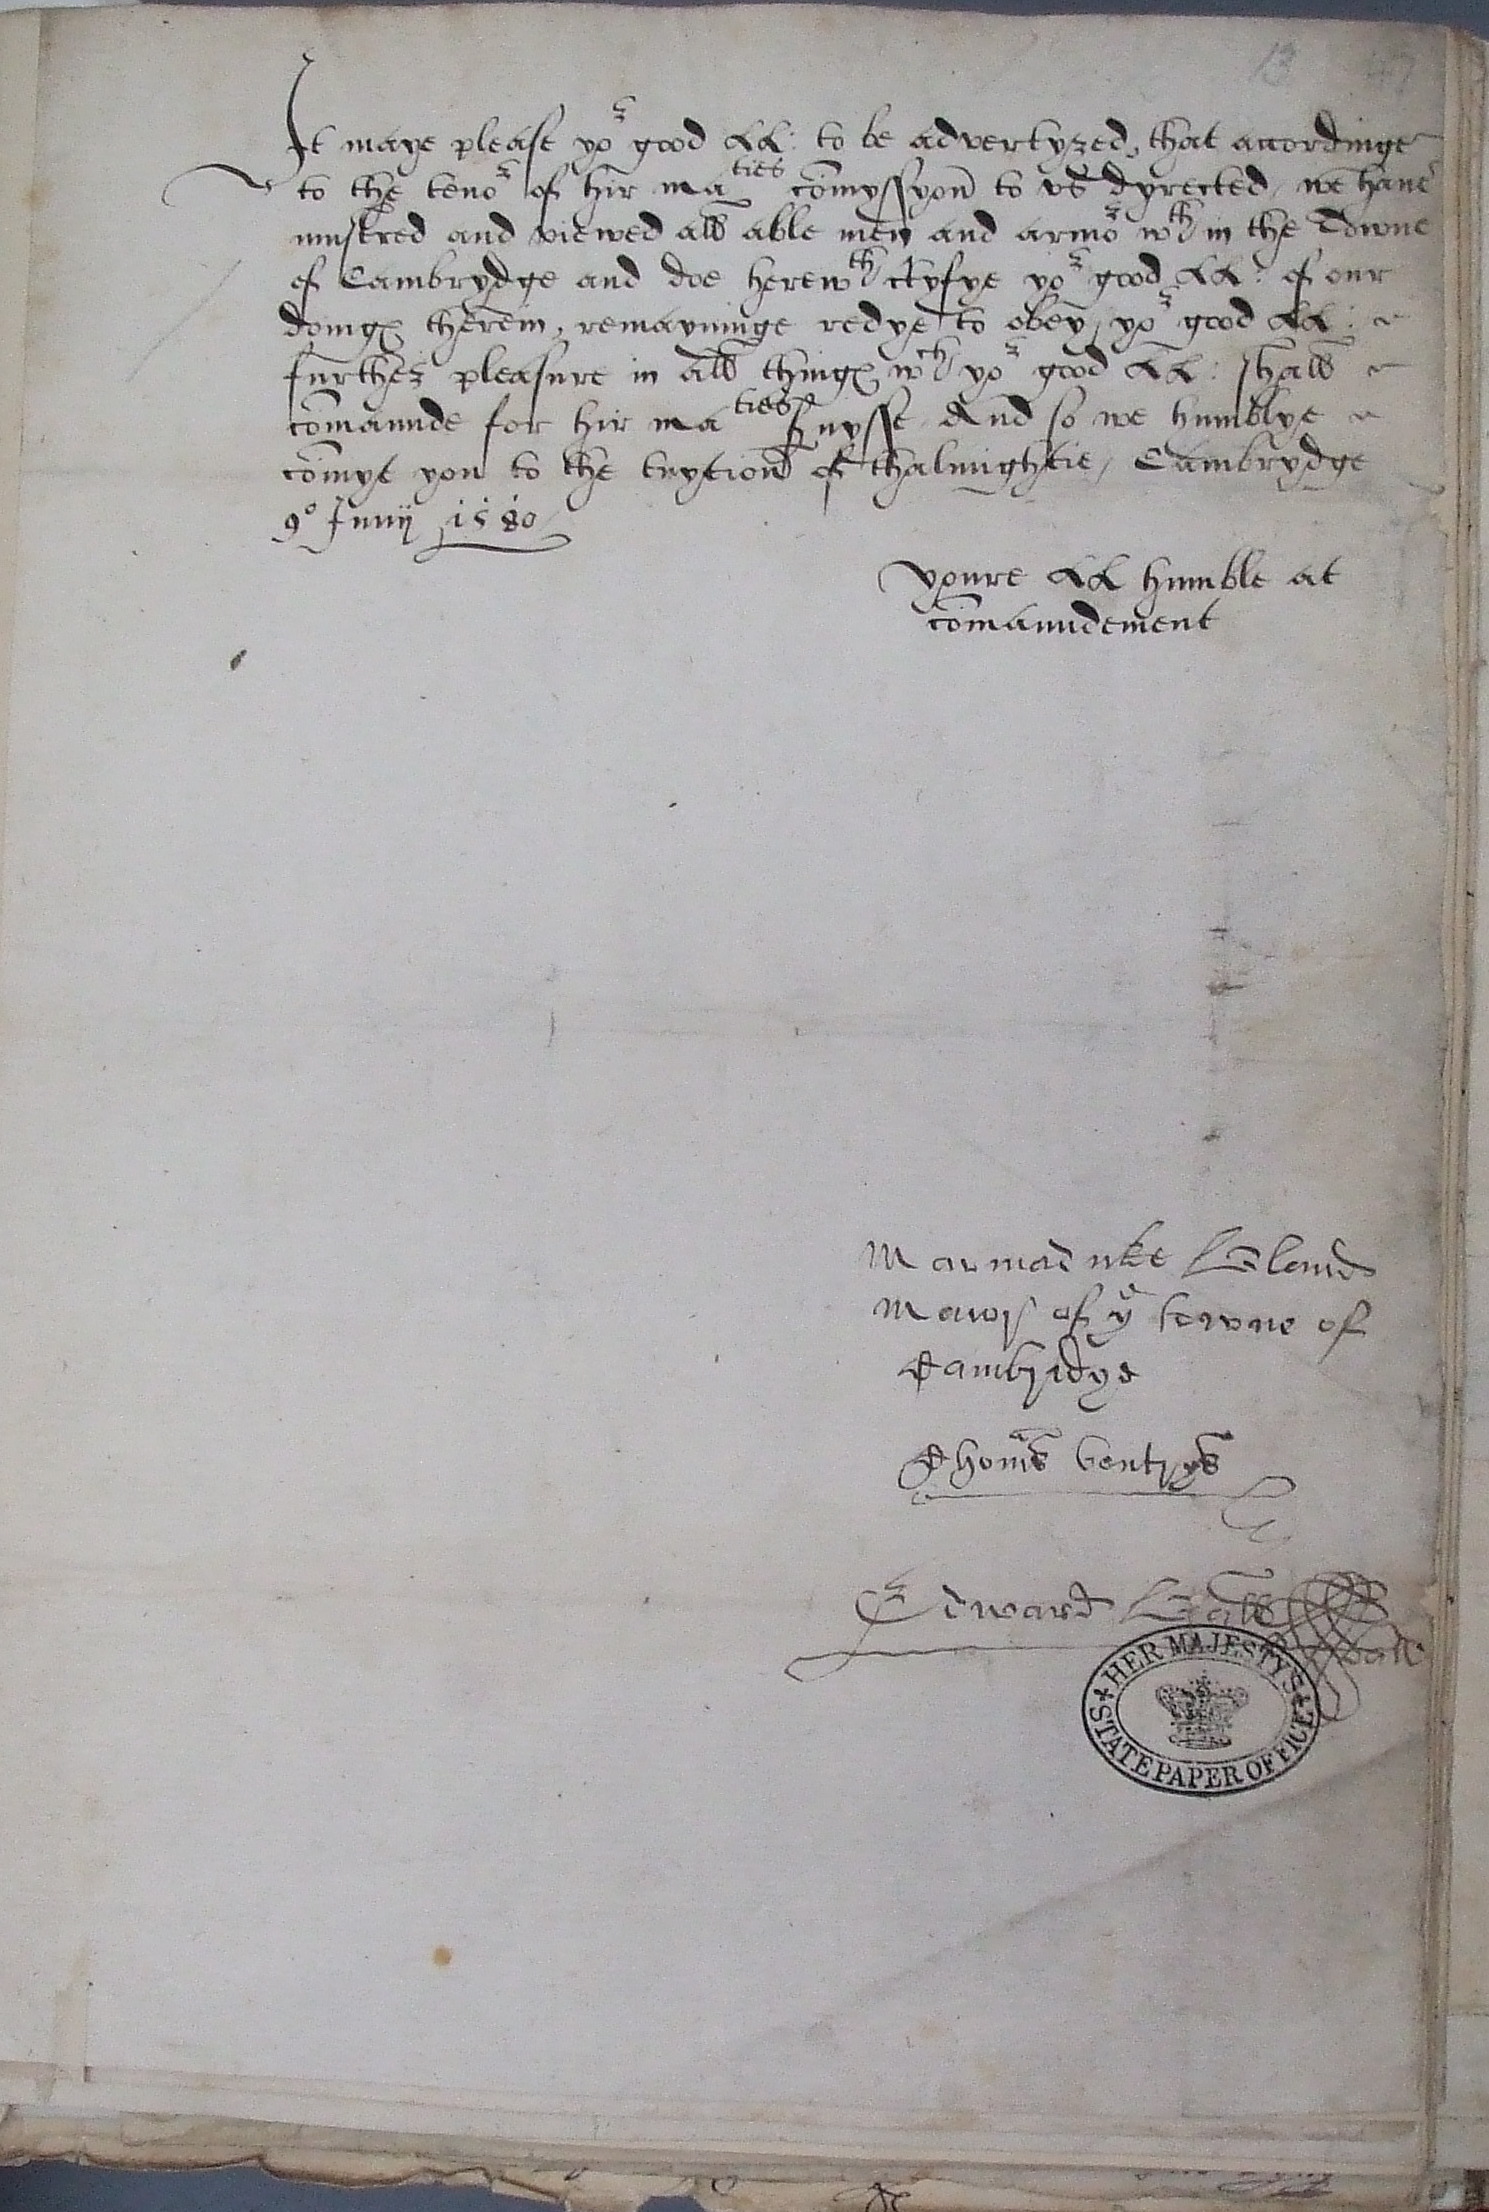 13 47
It maye please yor good LL: to be advertyzed, that accordinge
to the tenor of hir maties comyssyon to vs dyrected, we haue
mustred and viewed all able men and armor wth in the Towne
of Cambrydge and doe herewth ctyfye yor good LL: of our
doinges therein, remayninge redye to obey, yor good LL:
further pleasure in all thinges wch yor good LL: shall
comaunde for hir maties suysse And so we humblye
comyt you to the tuytion of thalmightie, Cambrydge
9o Junij 1580
youre LL humble at
comaundement
Marmaduke Bland
Maior of ye towne of
Cambridge
Thomas Ventrys
Edward Ball
Ball
HER MAJESTY'S
STATE PAPER OFFICE